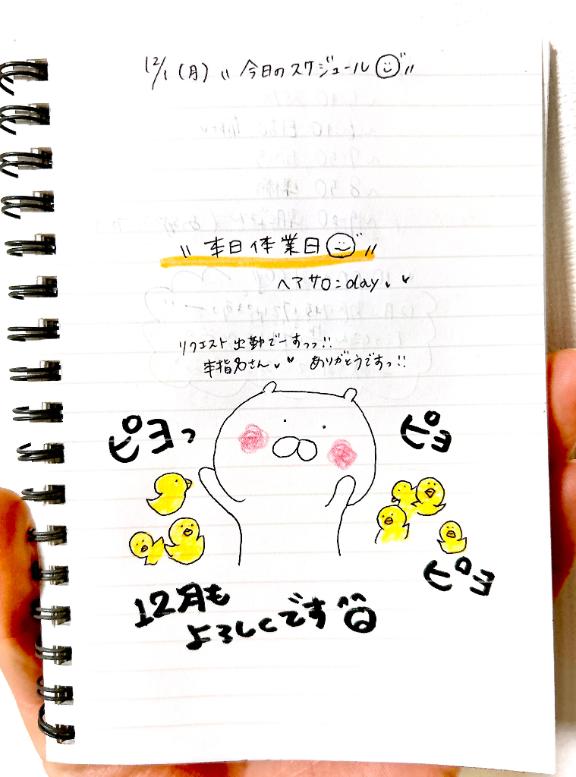 12/1 (月) "今日のスケジュール"
"本日休業日"
ヘアサロンday
リクエスト出勤でーすっっ!!
本指名さん ありがとうですっ!!
ピヨっ
ピヨ
ピヨ
12月も
よろしくです